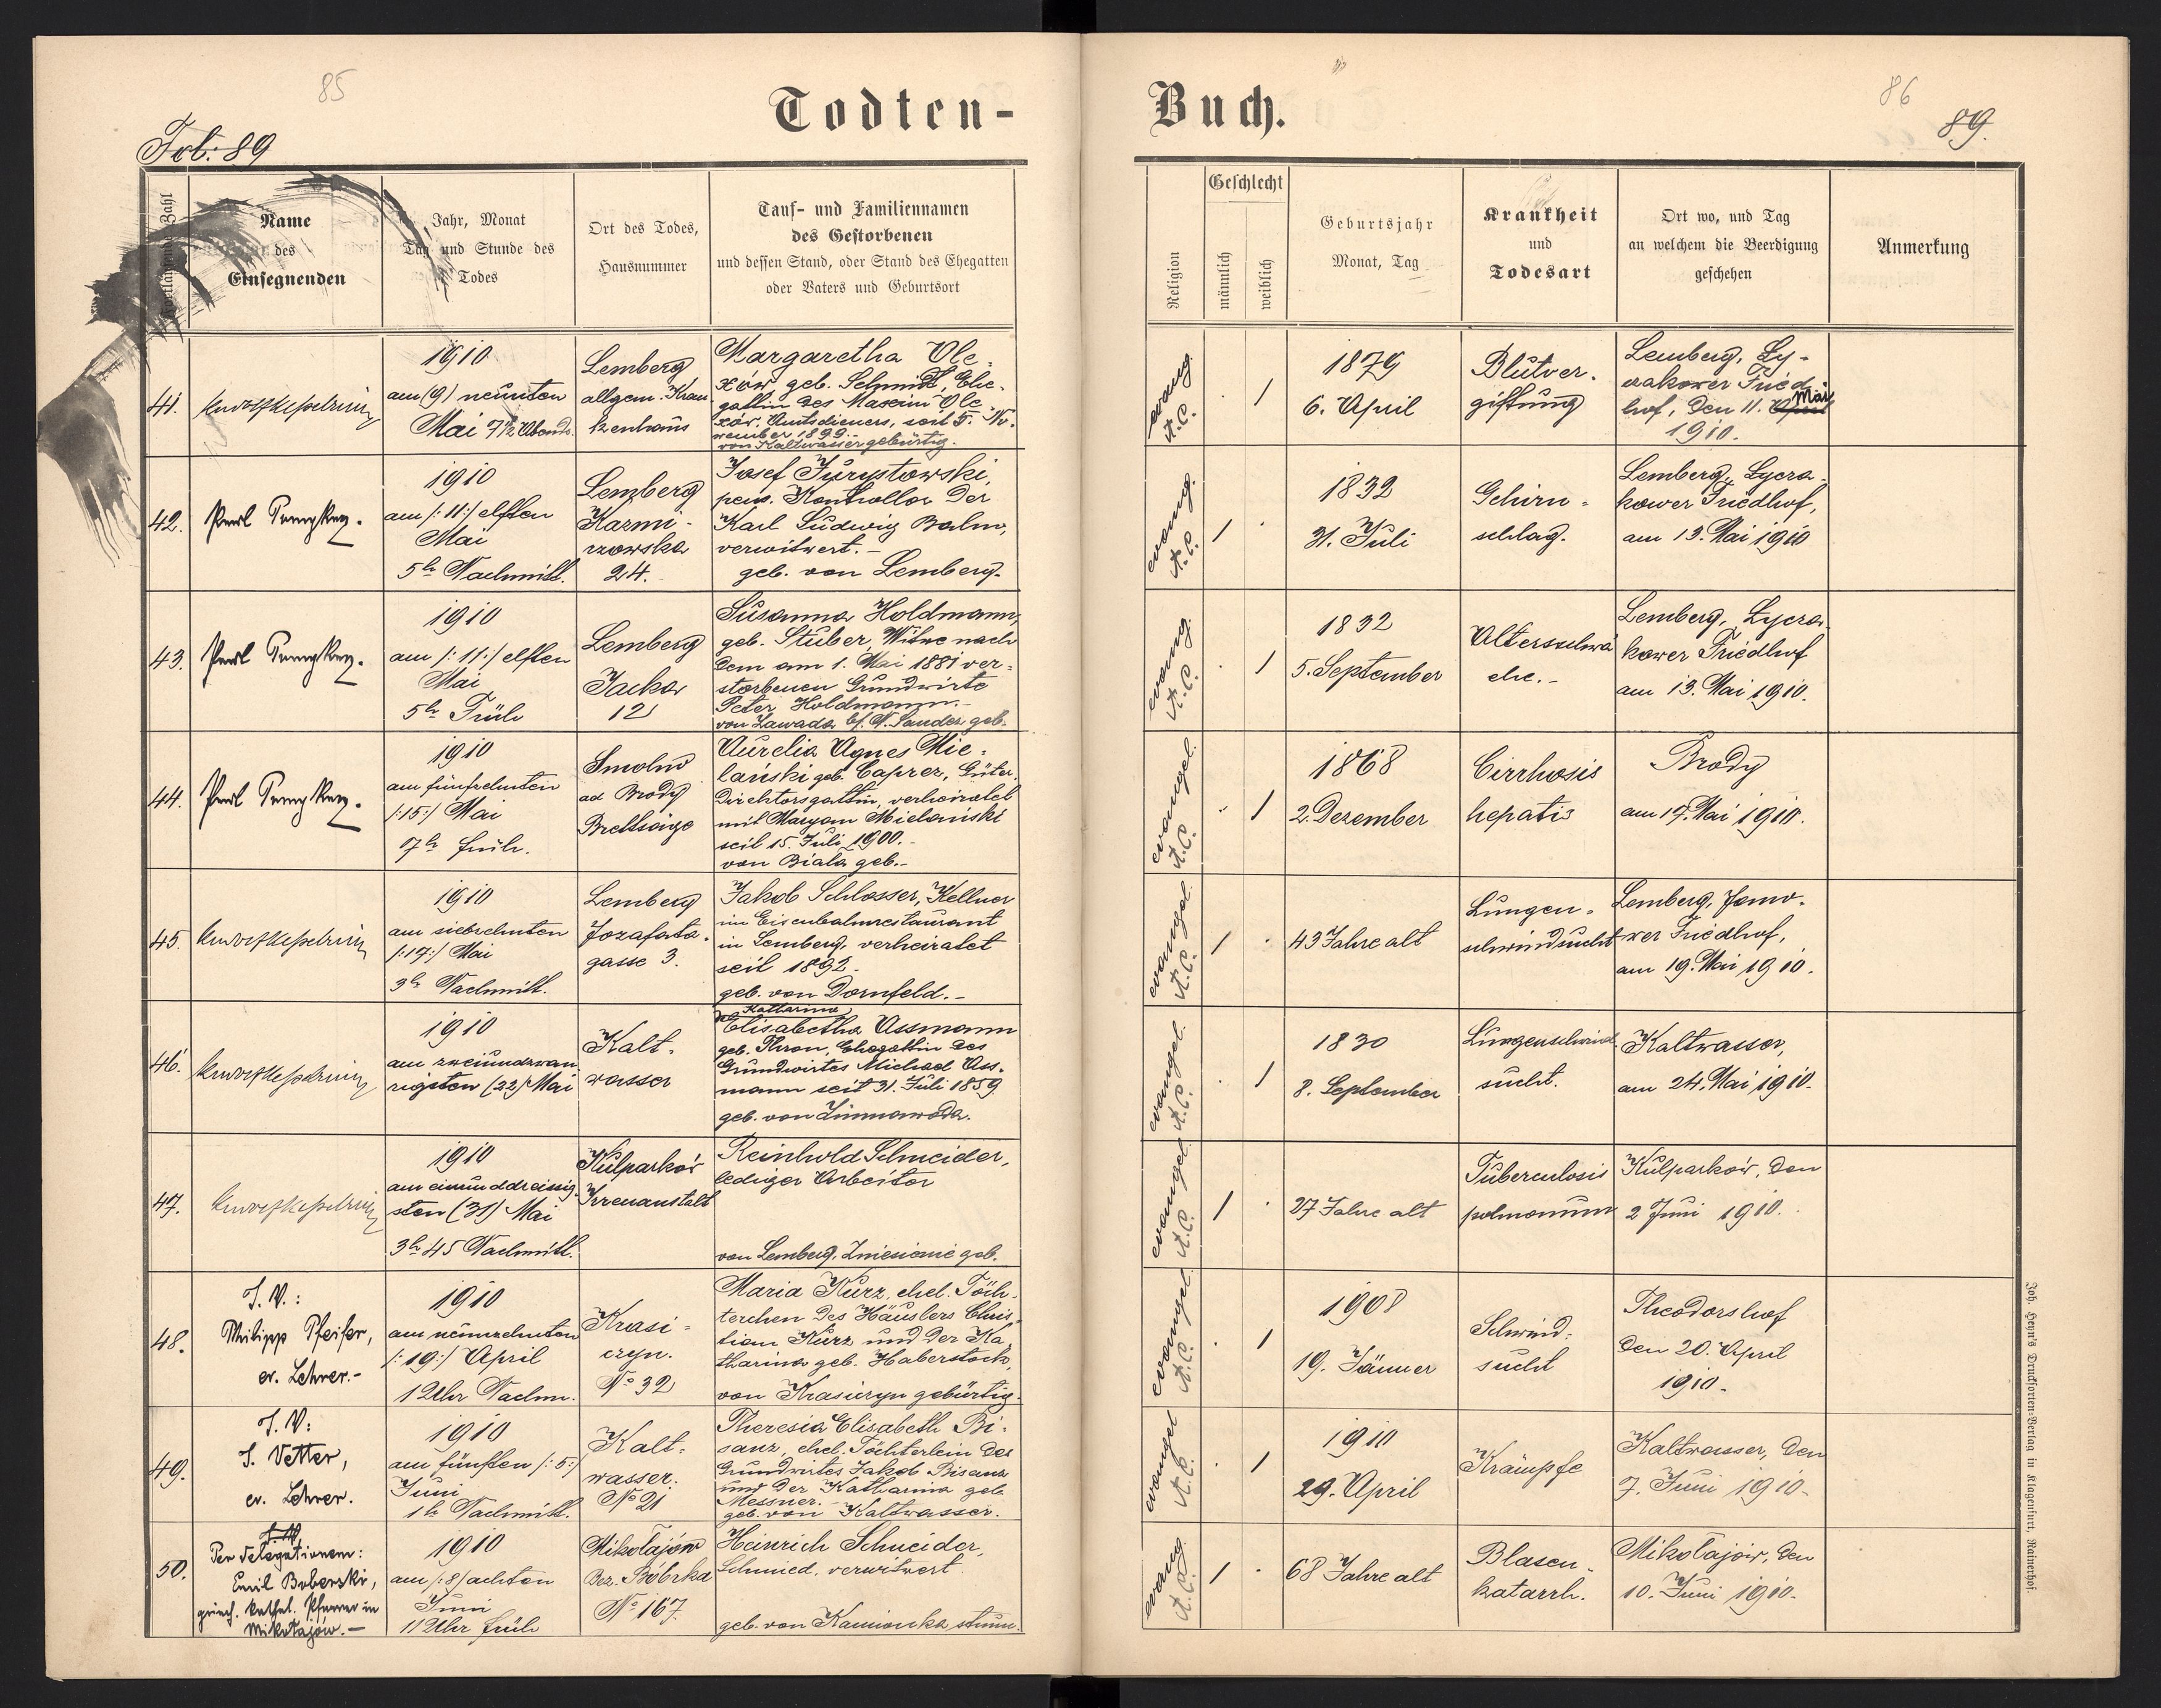 85
Todten-
Fol: 89
Fortlaufende Zahl
Name
des
Einsegnenden
Jahr, Monat
Tag und Stunde des
Todes
Ort des Todes,
Hausnummer
Tauf- und Familiennamen
des Gestorbenen
und dessen Stand, oder Stand des Ehegatten
oder Vaters und Geburtsort
41.
1910
am (9) neunten
Mai 7½ Abends.
Lemberg
allgem. Kran-
kenhaus
Margaretha Ole-
xów, geb. Schmidt, Ehe-
gattin des Maxim Ole-
xów, Amtsdieners, seit 5. No-
vember 1899.-
von Kaltwasser gebürtig.
42.
1910
am /:11:/ elften
Mai
5h Nachmitt.
Lemberg
Kazmi-
rzowska
24.
Josef Jurystowski,
pens. Kontrollor der
Karl Ludwig Bahn,
verwitwert.-
geb. von Lemberg.
43.
1910
am /:11:/ elften
Mai
5h Früh
Lemberg
Jacka
12
Susanna Holdmann,
geb. Stuber, Witwe nach
dem am 1. Mai 1881 ver-
storbenen Grundwirte
Peter Holdmann.-
von Zawada b/ N. Sandez geb.
44.
1910
am fünfzehnten
/:15:/ Mai
7h früh.
Smolno
ad Brody
Brettsäge
Aurelia Agnes Mie-
lański geb. Caprez, Güter
Direktorsgattin, verheiratet
mit Maryan Mielański
seit 15. Juli 1900.-
von Biała geb.-
45.
1910
am siebzehnten
/:17:/ Mai
3h Nachmitt.
Lemberg
Jozafata-
gasse 3.
Jakob Schlosser, Kellner
im Eisenbahnrestaurant
in Lemberg, verheiratet
seit 1892.
geb. von Dornfeld.-
46.
1910
am zweiundzwan
zigsten (22) Mai
Kalt-
wasser
Katharina
Elisabetha Assmann
geb. Thron, Ehegattin des
Grundwirtes Michael Ass-
mann seit 31. Juli 1859.
geb. von Zimnawoda.
47.
1910
am einunddreissig-
sten (31) Mai
3h 45 Nachmitt.
Kulparków
Irrenanstalt
Reinhold Schneider,
lediger Arbeiter
von Lemberg, Zniesienie geb.
48.
I. V.:
Philipp Pfeifer,
ev. Lehrer.-
1910
am neunzehnten
/:19:/ April
1 Uhr Nachm.
Krasi-
czyn.
No 32
Maria Kurz, ehel. Töch-
terchen des Häuslers Chris-
tian Kurz und der Ka-
tharina geb. Haberstock,
von Krasiczyn gebürtig.
49.
I. V:
J. Vetter,
ev. Lehrer.
1910
am fünften /:5:/
Juni
1h Nachmitt.
Kalt-
wasser.
No 21
Theresia Elisabeth Bi-
sanz, ehel. Töchterlein des
Grundwirtes Jakob Bisanz
und der Katharina geb.
Messner.-
geb. von Kaltwasser.
50.
Per delegationem:
Emil Boberski,
griech. kathol. Pfarrer in
Mikołajów.-
1910
am /:8/ achten
Juni
11 Uhr früh
Mikołajów
Bez. Bóbrka
No 167.
Heinrich Schneider,
Schmied, verwitwert
geb. von Kamionka strum.
Buch.
86
89.
Religion
Geschlecht
männlich
weiblich
Geburtsjahr
Monat, Tag
Krankheit
und
Todesart
Ort wo, und Tag
an welchem die Beerdigung
geschehen
Anmerkung
evang.
A.C.
1
1879
6. April
Blutver-
giftung
Lemberg, Ly-
czakower Fried-
hof, den 11. April Mai
1910.
evang.
A.C.
1
1832
31. Juli
Gehirn-
schlag.
Lemberg, Lycza-
kower Friedhof,
am 13. Mai 1910
evang.
A.C.
1
1832
5. September
Altersschwä
che.-
Lemberg, Lycza-
kower Friedhof
am 13. Mai 1910.
evangel.
A.C.
1
1868
2. Dezember
Cirrhosis
hepatis
Brody
am 17. Mai 1910.
evangel.
A.C.
1
43 Jahre alt
Lungen-
schwindsucht
Lemberg, Jano-
wer Friedhof,
am 19. Mai 1910.
evangel.
A.C.
1
1830
8. September
Lungenschwind
sucht.
Kaltwasser,
am 24. Mai 1910.
evangel
A.C.
1
27 Jahre alt
Tuberculosis
pulmonum
Kulparków, den
2 Juni 1910.
evangel.
A.C.
1
1908
19. Jänner
Schwind-
sucht
Theodorshof
den 20. April
1910.
evangel
A.C.
1
1910
29. April
Krämpfe
Kaltwasser, den
7. Juni 1910.
evang.
A.C.
1
68 Jahre alt
Blasen-
katarrh.
Mikołajów, den
10. Juni 1910.
Joh. Heyn's Drucksorten-Verlag in Klagenfurt, Rainerhof.